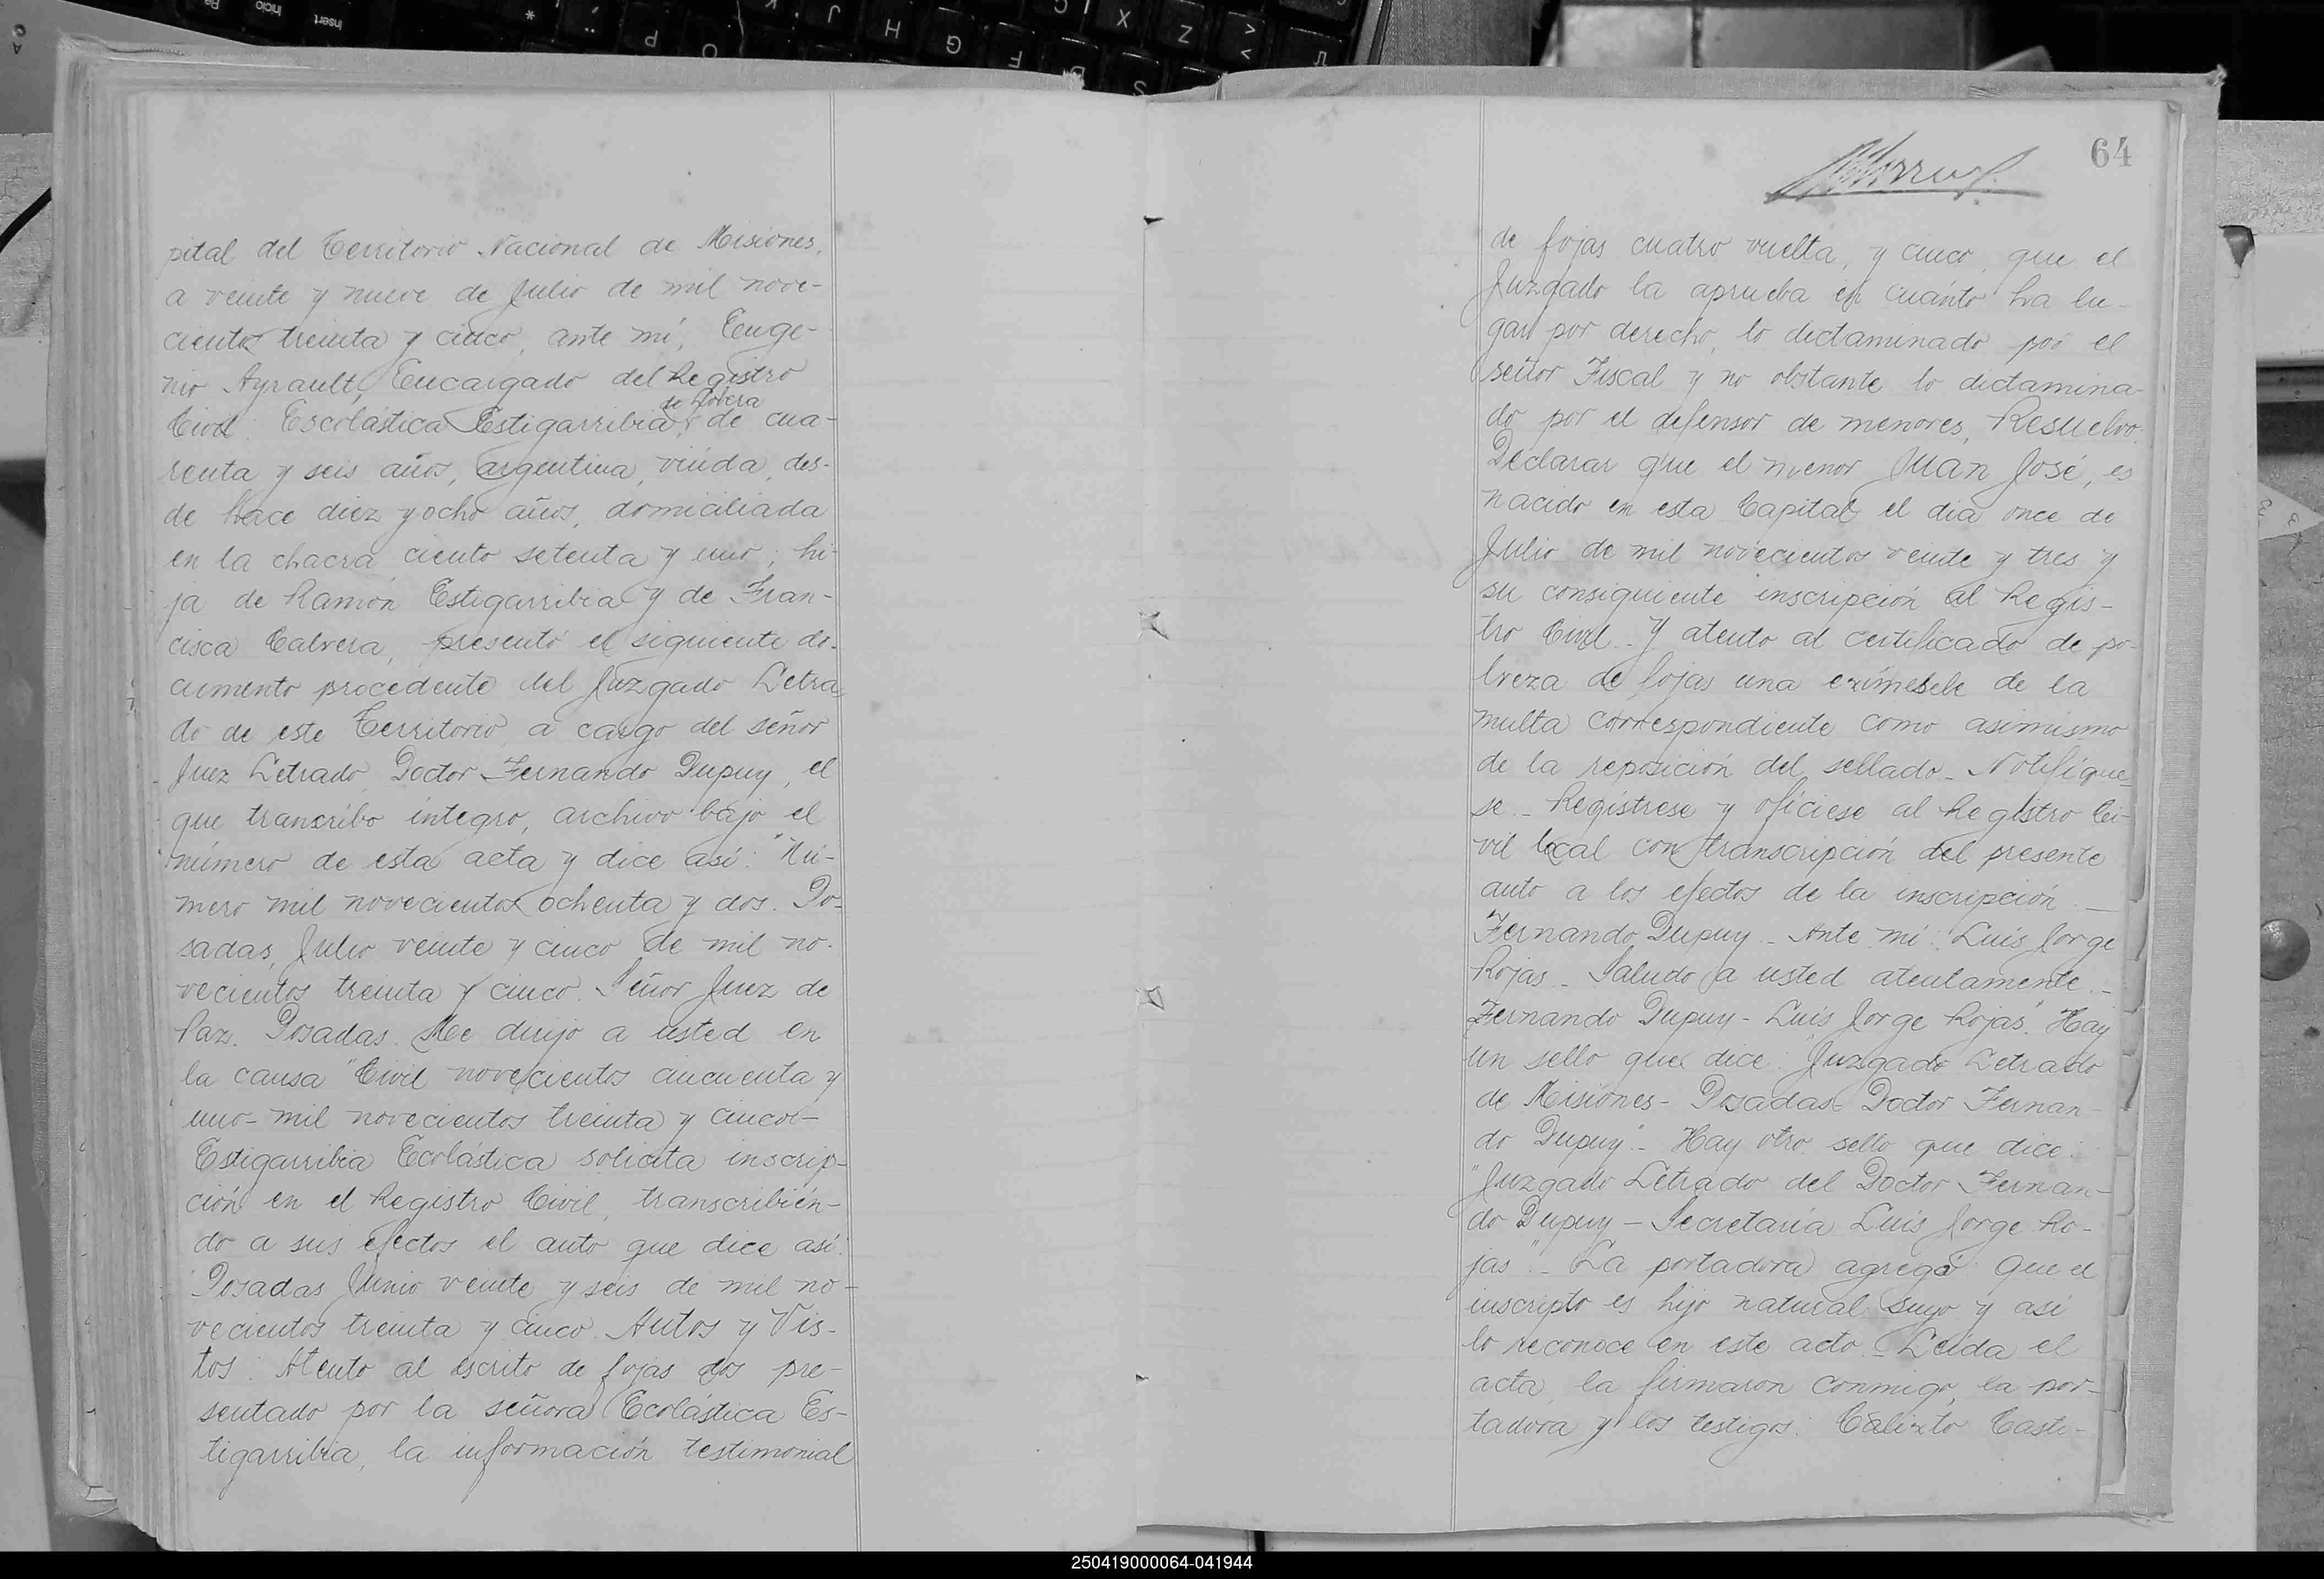 pital del Territorio Nacional de Misiones,
a veinte y nueve de Julio de mil nove-
cientos treinta y cinco, ante mí, Euge-
nio Ayrault, Encargado del Registro
de Lovera
Civil: Escolástica Estigarribia, de cua-
renta y seis años, argentina, viuda, des-
de hace diez y ocho años, domiciliada
en la chacra ciento setenta y uno; hi-
ja de Ramón Estigarribia y de Fran-
cisca Calvera, presentó el siguiente do-
cumento procedente del Juzgado Letra-
do de este Territorio a cargo del señor
Juez Letrado Doctor Fernando Dupuy, el
que transcribo íntegro, archivo bajo el
número de esta acta y dice así: "Nú-
mero mil novecientos ochenta y dos. Po-
sadas, Julio veinte y cinco de mil no-
vecientos treinta y cinco. Señor Juez de
Paz. Posadas. Me dirijo a usted en
la causa "Civil novecientos cincuenta y
uno- mil novecientos treinta y cinco-
Estigarribia Ecolástica solicita inscrip-
ción en el Registro Civil, transcribién-
do a sus efectos el auto que dice así:
Posadas Junio veinte y seis de mil no-
vecientos treinta y cinco. Autos y Vis-
tos: Atento al escrito de fojas dos pre-
sentado por la señora Ecolástica Es-
tigarribia, la información testimonial
64
de fojas cuatro vuelta, y cinco, que el
Juzgado la aprueba en cuánto ha lu-
gar por derecho, lo dictaminado por el
señor Fiscal y no obstante lo dictamina-
do por el defensor de menores, Resuelvo:
Declarar que el menor Juan José, es
nacido en esta Capital el día once de
Julio de mil novecientos veinte y tres y
su consiguiente inscripción al Regis-
tro Civil.- Y atento al certificado de po-
breza de fojas una exímesele de la
multa correspondiente como asimismo
de la reposición del sellado.- Notifíque-
se.- Regístrese y ofíciese al Registro Ci-
vil local con transcripción del presente
auto a los efectos de la inscripción.-
Fernando Dupuy.- Ante mí: Luis Jorge
Rojas.- Saludo a usted atentamente.-
Fernando Dupuy- Luis Jorge Rojas". Hay
un sello que dice: "Juzgado Letrado
de Misiones- Posadas- Doctor Fernan-
do Dupuy".- Hay otro sello que dice:
"Juzgado Letrado del Doctor Fernan-
do Dupuy- Secretaría Luis Jorge Ro-
jas".- La portadora agregó: Que el
inscripto es hijo natural suyo y así
lo reconoce en este acto.- Leída el
acta, la firmaron conmigo, la por-
tadora y los testigos: Calixto Casti-
250419000064-041944